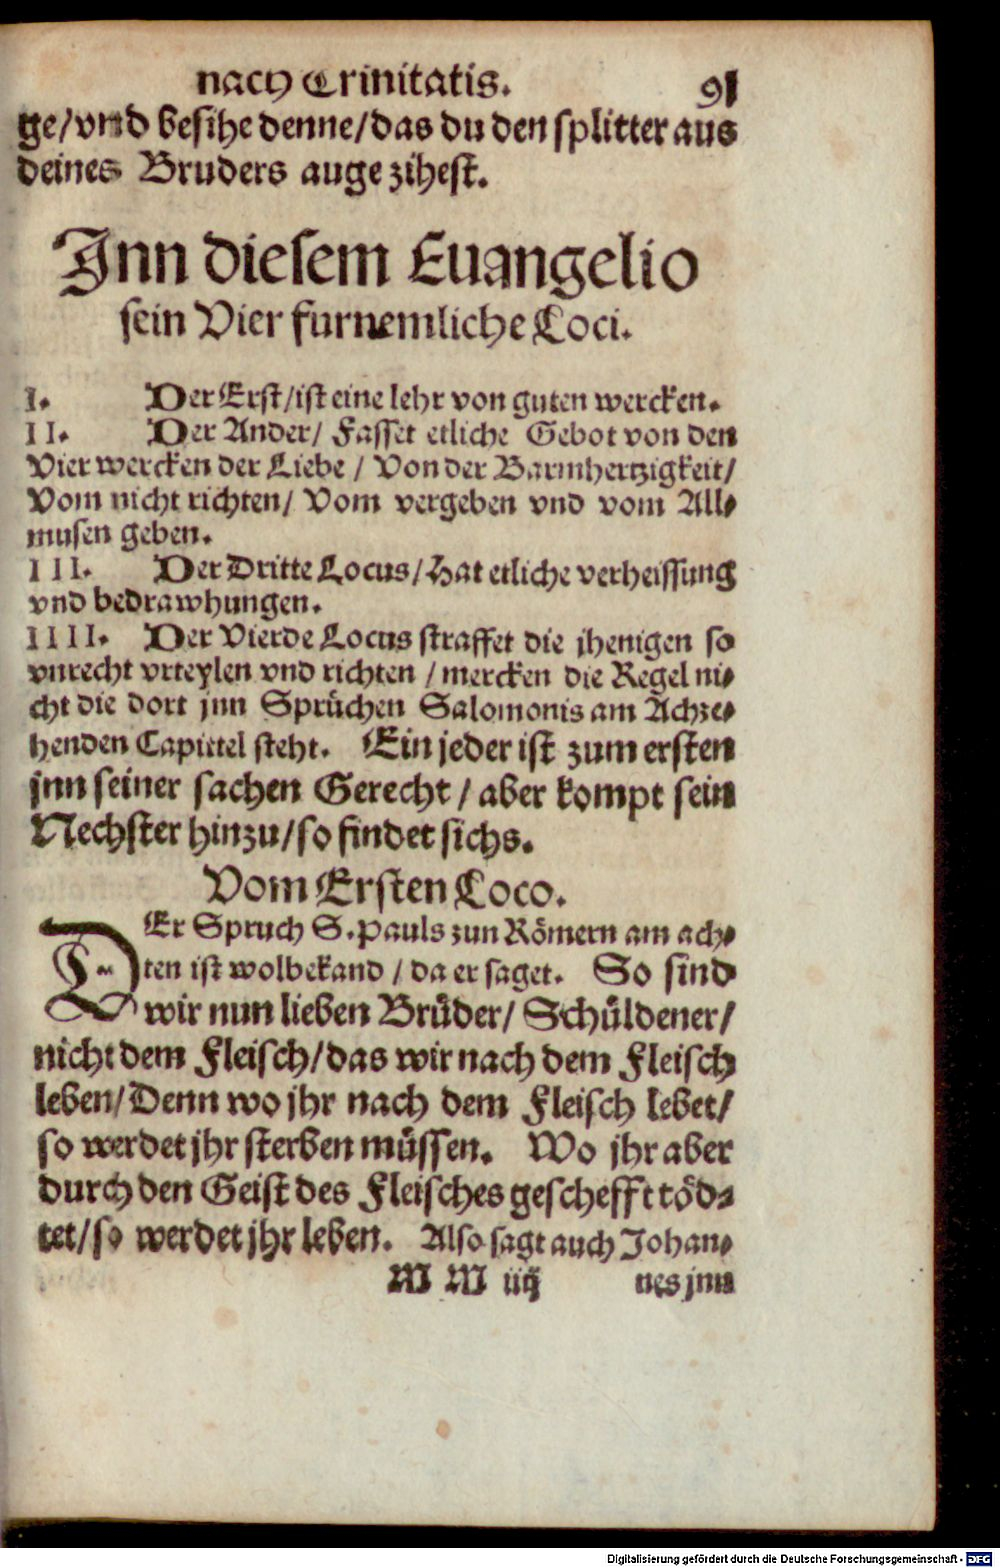 nach Trinitatis. 91
ge/vnd besihe denne/das du den splitter aus
deines Bruders auge zihest.
Jnn diesem Euangelio
sein Vier furnemliche Loci.
I. Der Erst/ist eine lehr von guten wercken.
II. Der Ander/ Fasset etliche Gebot von den
Vier wercken der Liebe / Von der Barmhertzigkeit/
Vom nicht richten/ Vom vergeben vnd vom All⸗
musen geben.
III. Der Dritte Locus/Hat etliche verheissung
vnd bedrawhungen.
IIII. Der Vierde Locus straffet die jhenigen so
vnrecht vrteylen vnd richten / mercken die Regel ni⸗
cht die dort jnn Sprüchen Salomonis am Achze⸗
henden Capittel steht. Ein jeder ist zum ersten
jnn seiner sachen Gerecht / aber kompt sein
Nechster hinzu/so findet sichs.
Vom Ersten Loco.
DEr Spruch S. Pauls zun Römern am ach⸗
ten ist wolbekand / da er saget. So sind
wir nun lieben Brüder/ Schüldener/
nicht dem Fleisch/das wir nach dem Fleisch
leben/Denn wo jhr nach dem Fleisch lebet/
so werdet jhr sterben müssen. Wo jhr aber
durch den Geist des Fleisches geschefft töd⸗
tet/so werdet jhr leben. Also sagt auch Johan⸗
M M iiij nes jnn
Digitalisierung gefördert durch die Deutsche Forschungsgemeinschaft - DFG